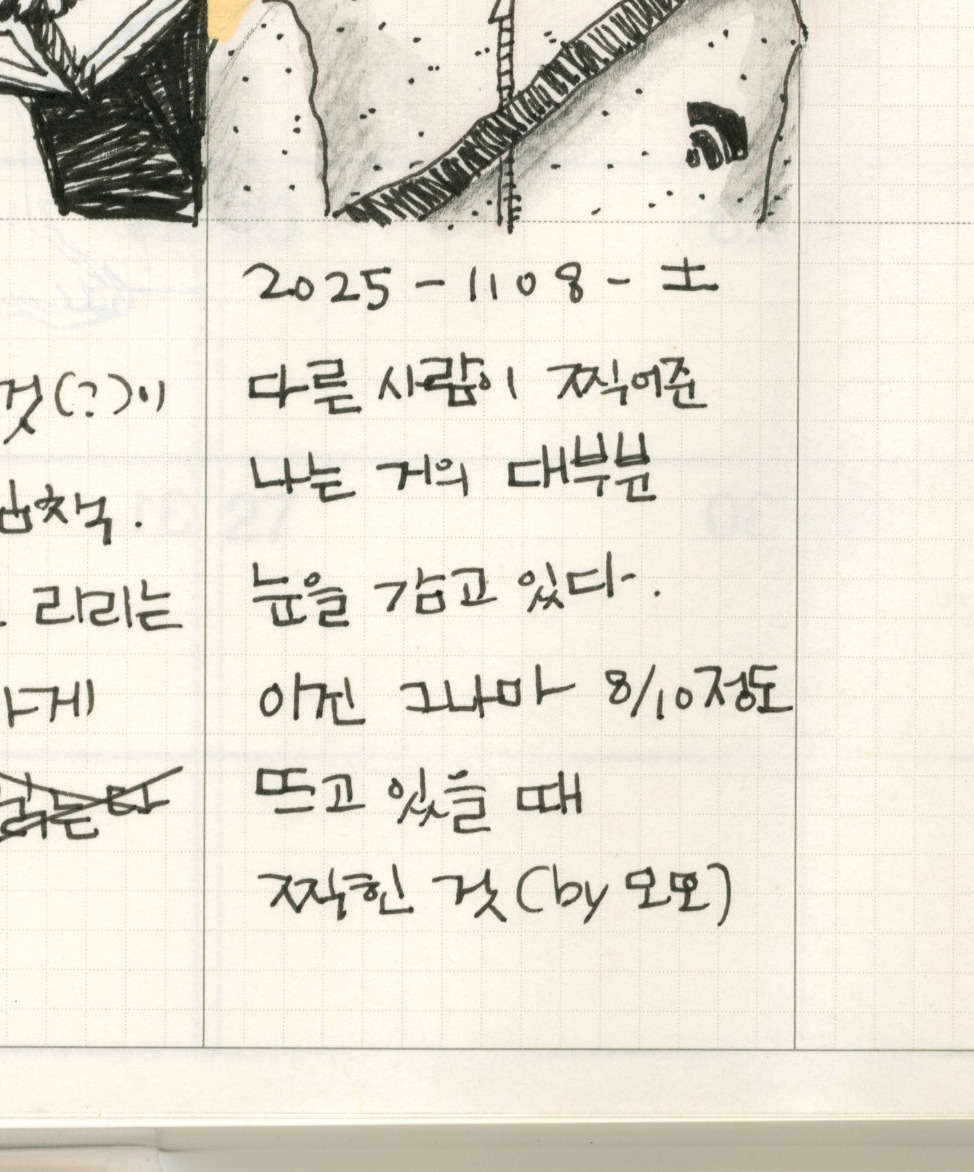 2025 - 1108 - 土
다른 사람이 찍어준
나는 거의 대부분
눈을 감고 있다.
이건 그나마 8/10정도
뜨고 있을 때
찍힌 것 (by 모모)
것(?)이
책.
라리는
게